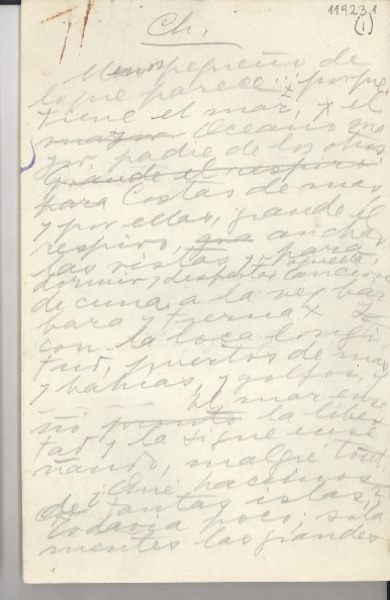 11923,1
(1)
Ch.
Menos pequeño de
lo que parece : porque
tiene el mar, y el
mayor Océano ma
yor, padre de los otros
grande el respiro
para Costas de mar,
y por ellas, grande el
respiro, ancha
las vistas y para
dormir y despertar canción
de cuna a la vez bar
bara y tierna x
con la loca longi
tud, puertos de mar
y bahías, y golfos, y
El mar ense
ñó pronto la liber
tad y la sigue ense
ñando, malgré tout,
¿Qué hacemos
de tantas islas,
Todavía poco; sola
mentes las grandes